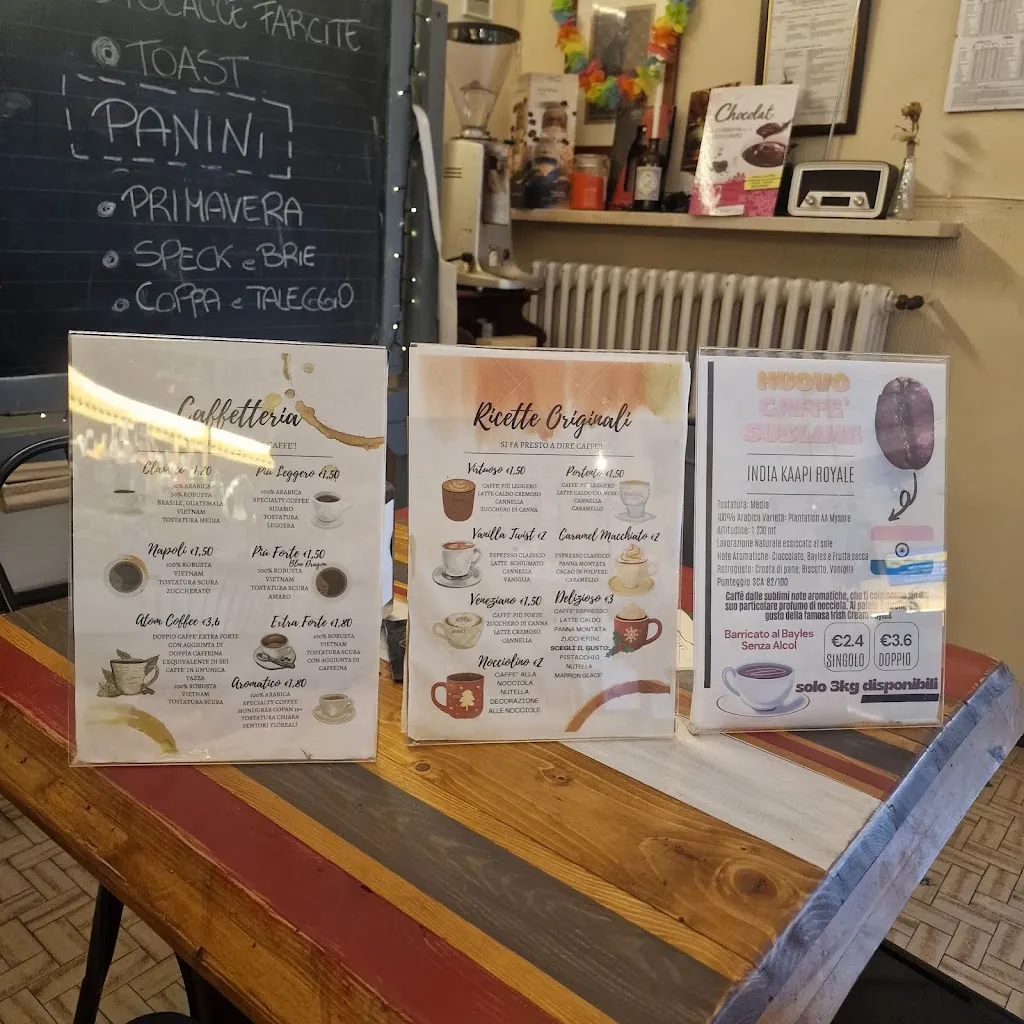 FOCACCE FARCITE
TOAST
PANINI
PRIMAVERA
SPECK e BRIE
COPPA e TALEGGIO
Chocolat
Caffetteria
CAFFE'!
Classic 1,20
50% ARABICA
50% ROBUSTA
BRASILE, GUATEMALA
VIETNAM
TOSTATURA MEDIA
Più Leggero €1,50
100% ARABICA
SPECIALTY COFFEE
SIDAMO
TOSTATURA
LEGGERA
Napoli €1,50
100% ROBUSTA
VIETNAM
TOSTATURA SCURA
ZUCCHERATO
Più Forte €1,50
Blue Dragon
100% ROBUSTA
VIETNAM
TOSTATURA SCURA
AMARO
Atom Coffee €3,6
DOPPIO CAFFE EXTRA FORTE
CON AGGIUNTA DI
DOPPIA CAFFEINA
L'EQUIVALENTE DI SEI
CAFFE' IN UN'UNICA
TAZZA
100% ROBUSTA
VIETNAM
TOSTATURA SCURA
Extra Forte €1,80
100% ROBUSTA
VIETNAM
TOSTATURA SCURA
CON AGGIUNTA DI
CAFFEINA
Aromatico €1,80
100% ARABICA
SPECIALTY COFFEE
HONDURAS COPAN
TOSTATURA CHIARA
SENTORI FLOREALI
Ricette Originali
SI FA PRESTO A DIRE CAFFE'!
Virtuoso €1,50
CAFFE' PIÙ LEGGERO
LATTE CALDO CREMOSO
CANNELLA
ZUCCHERO DI CANNA
Portento €1,50
CAFFE' PIÙ LEGGERO
LATTE CALDO CREMOSO
CANNELLA
CARAMELLO
Vanilla Twist €2
ESPRESSO CLASSICO
LATTE SCHIUMATO
CANNELLA
VANIGLIA
Caramel Macchiato €2
ESPRESSO CLASSICO
PANNA MONTATA
CACAO IN POLVERE
CARAMELLO
Veneziano €1,50
CAFFE' PIÙ FORTE
ZUCCHERO DI CANNA
LATTE CREMOSO
CANNELLA
Delizioso €3
CAFFE' ESPRESSO
LATTE CALDO
PANNA MONTATA
ZUCCHERINI
SCEGLI IL GUSTO:
PISTACCHIO
NUTELLA
MARRON GLACE'
Nocciolino €2
CAFFE' ALLA
NOCCIOLA
NUTELLA
DECORAZIONE
ALLE NOCCIOLE
NUOVO
CAFFE'
SUBLIME
INDIA KAAPI ROYALE
Tostatura: Media
100% Arabica Varietà: Plantation AA Mysore
Altitudine: 1 230 mt
Lavorazione Naturale essiccato al sole
Note Aromatiche: Cioccolato, Bayles e Frutta secca
Retrogusto: Crosta di pane, Biscotto, Vaniglia
Punteggio SCA 82/100
Caffè dalle sublimi note aromatiche, che ti colpiscono per il
suo particolare profumo di nocciola. Al palato
gusto della famosa Irish Cream Bayles
Barricato al Bayles
Senza Alcol
€2.4
SINGOLO
€3.6
DOPPIO
solo 3kg disponibili